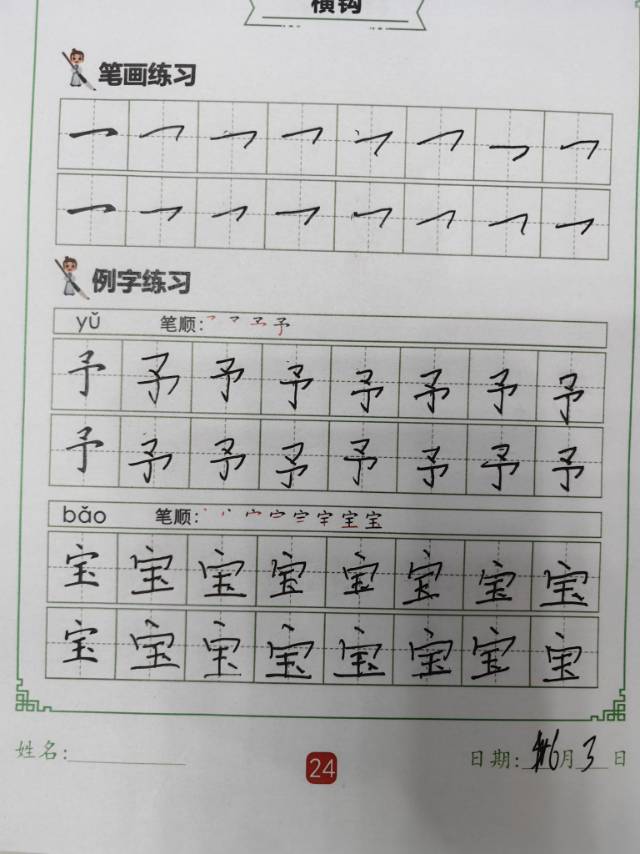 横钩
笔画练习
例字练习
yǔ 笔顺:
予 予 予 予 予 予 予 予
予 予 予 予 予 予 予 予
bǎo 笔顺:
宝 宝 宝 宝 宝 宝 宝 宝
宝 宝 宝 宝 宝 宝 宝 宝
姓名: 24 日期: 6月3日